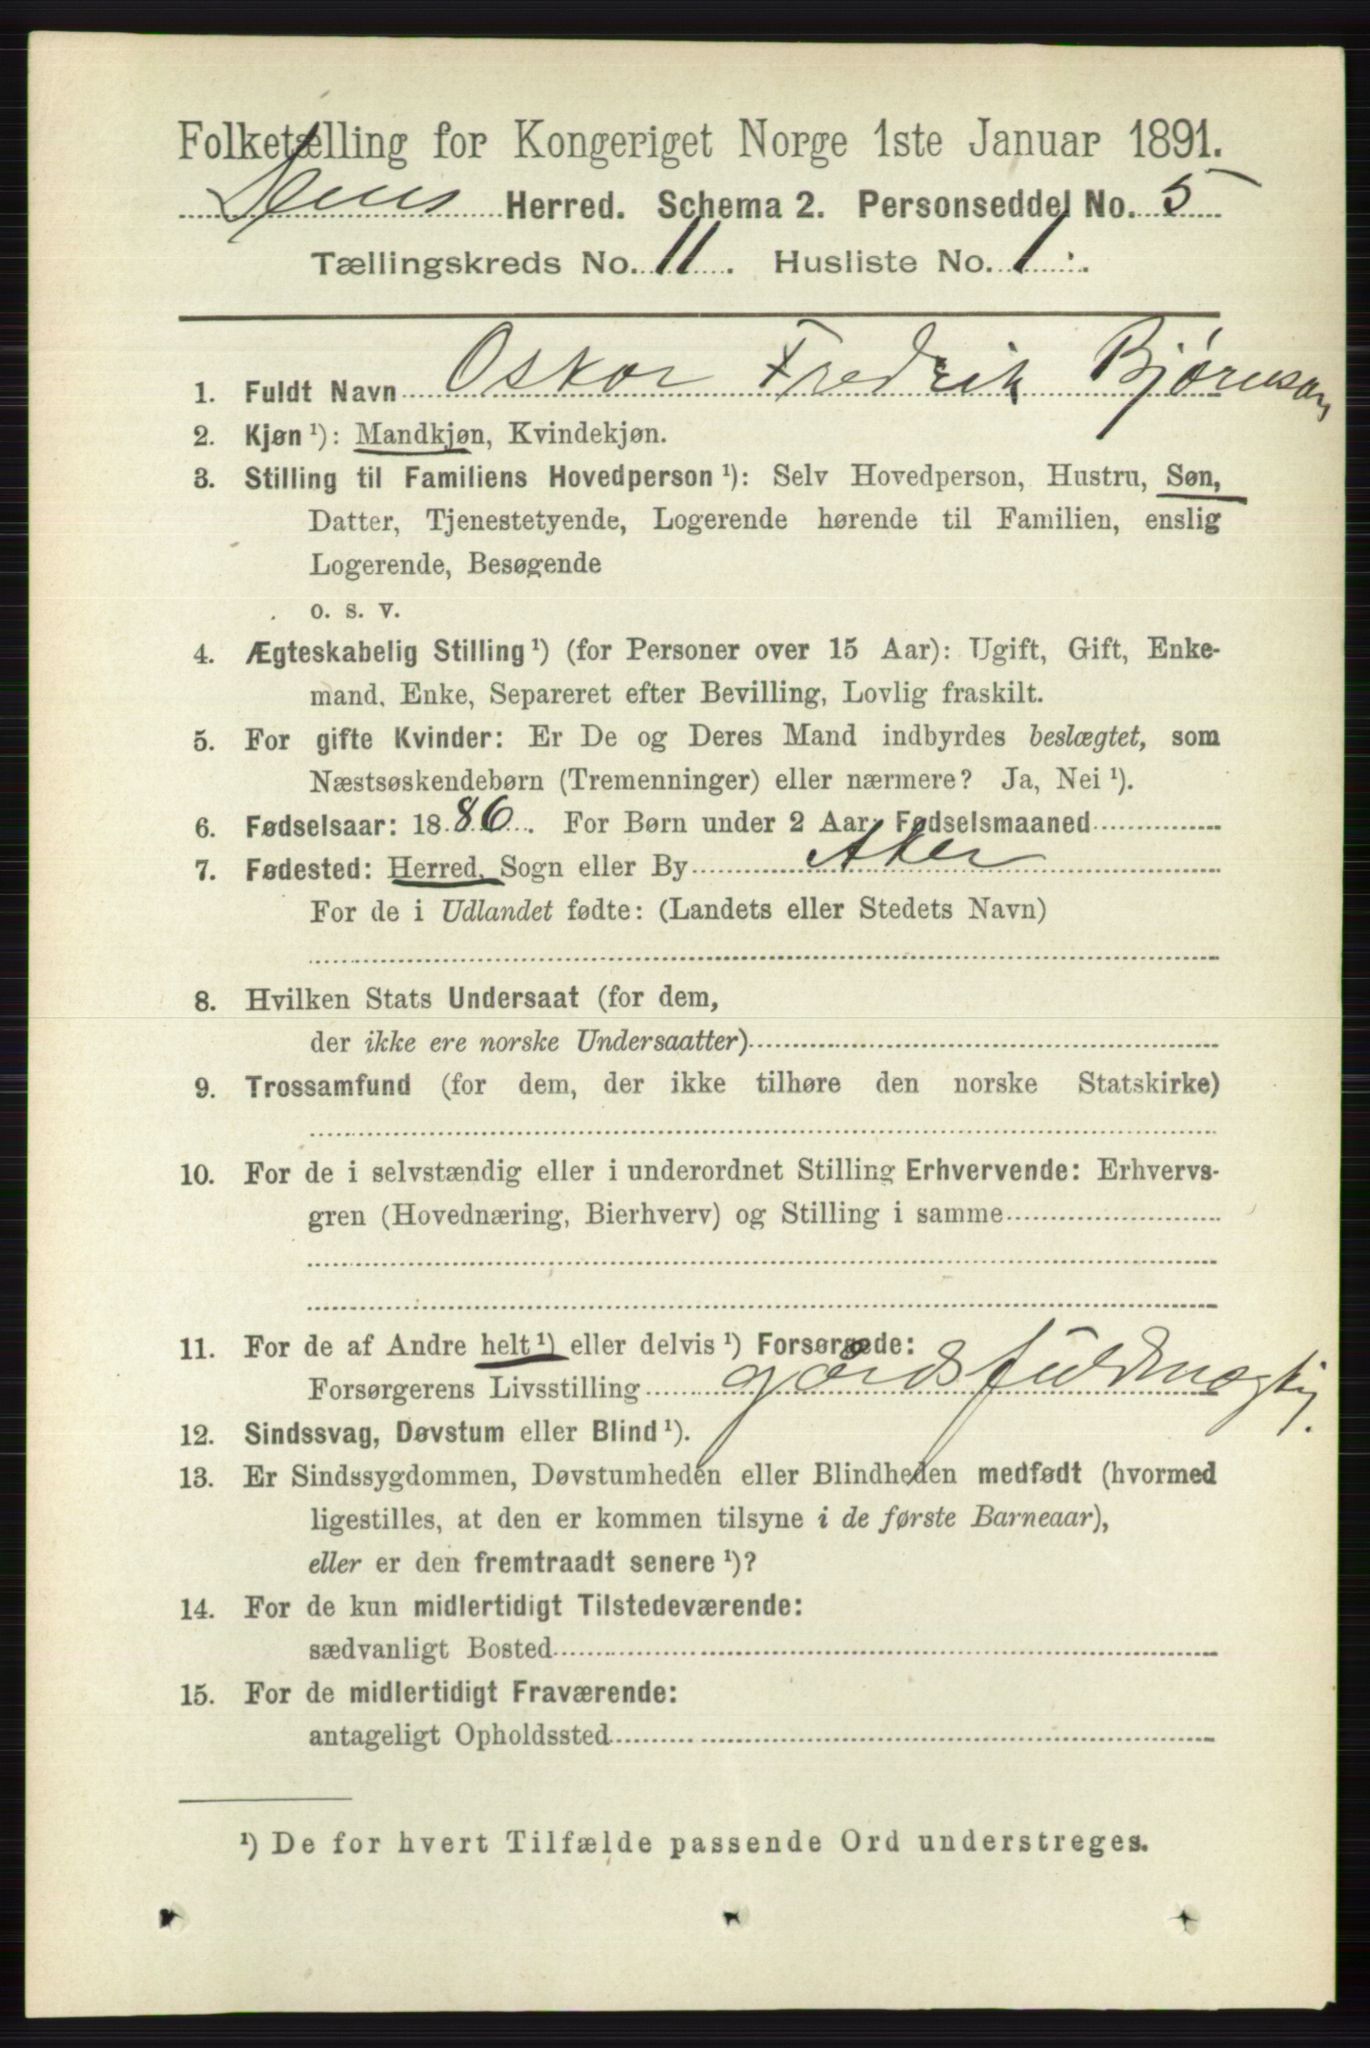 Folketælling for Kongeriget Norge 1ste Januar 1891.
Herred. Schema 2. Personseddel No. 5
Tællingskreds No. 11. Husliste No. 1.
1. Fuldt Navn Oskar Fredrik Bjørnson
2. Kjøn ¹): Mandkjøn, Kvindekjøn.
3. Stilling til Familiens Hovedperson ¹): Selv Hovedperson, Hustru, Søn,
Datter, Tjenestetyende, Logerende hørende til Familien, enslig
Logerende, Besøgende
o. s. v.
4. Ægteskabelig Stilling ¹) (for Personer over 15 Aar): Ugift, Gift, Enke-
mand, Enke, Separeret efter Bevilling, Lovlig fraskilt.
5. For gifte Kvinder: Er De og Deres Mand indbyrdes beslægtet, som
Næstsøskendebørn (Tremenninger) eller nærmere? Ja, Nei ¹).
6. Fødselsaar: 1886. For Børn under 2 Aar, Fødselsmaaned
7. Fødested: Herred, Sogn eller By Aker
For de i Udlandet fødte: (Landets eller Stedets Navn)
8. Hvilken Stats Undersaat (for dem,
der ikke ere norske Undersaatter)
9. Trossamfund (for dem, der ikke tilhøre den norske Statskirke)
10. For de i selvstændig eller i underordnet Stilling Erhvervende: Erhvervs-
gren (Hovednæring, Bierhverv) og Stilling i samme
11. For de af Andre helt ¹) eller delvis ¹) Forsørgede:
Forsørgerens Livsstilling gårdsfuldmægtig.
12. Sindssvag, Døvstum eller Blind ¹).
13. Er Sindssygdommen, Døvstumheden eller Blindheden medfødt (hvormed
ligestilles, at den er kommen tilsyne i de første Barneaar),
eller er den fremtraadt senere ¹)?
14. For de kun midlertidigt Tilstedeværende:
sædvanligt Bosted
15. For de midlertidigt Fraværende:
antageligt Opholdssted
¹) De for hvert Tilfælde passende Ord understreges.